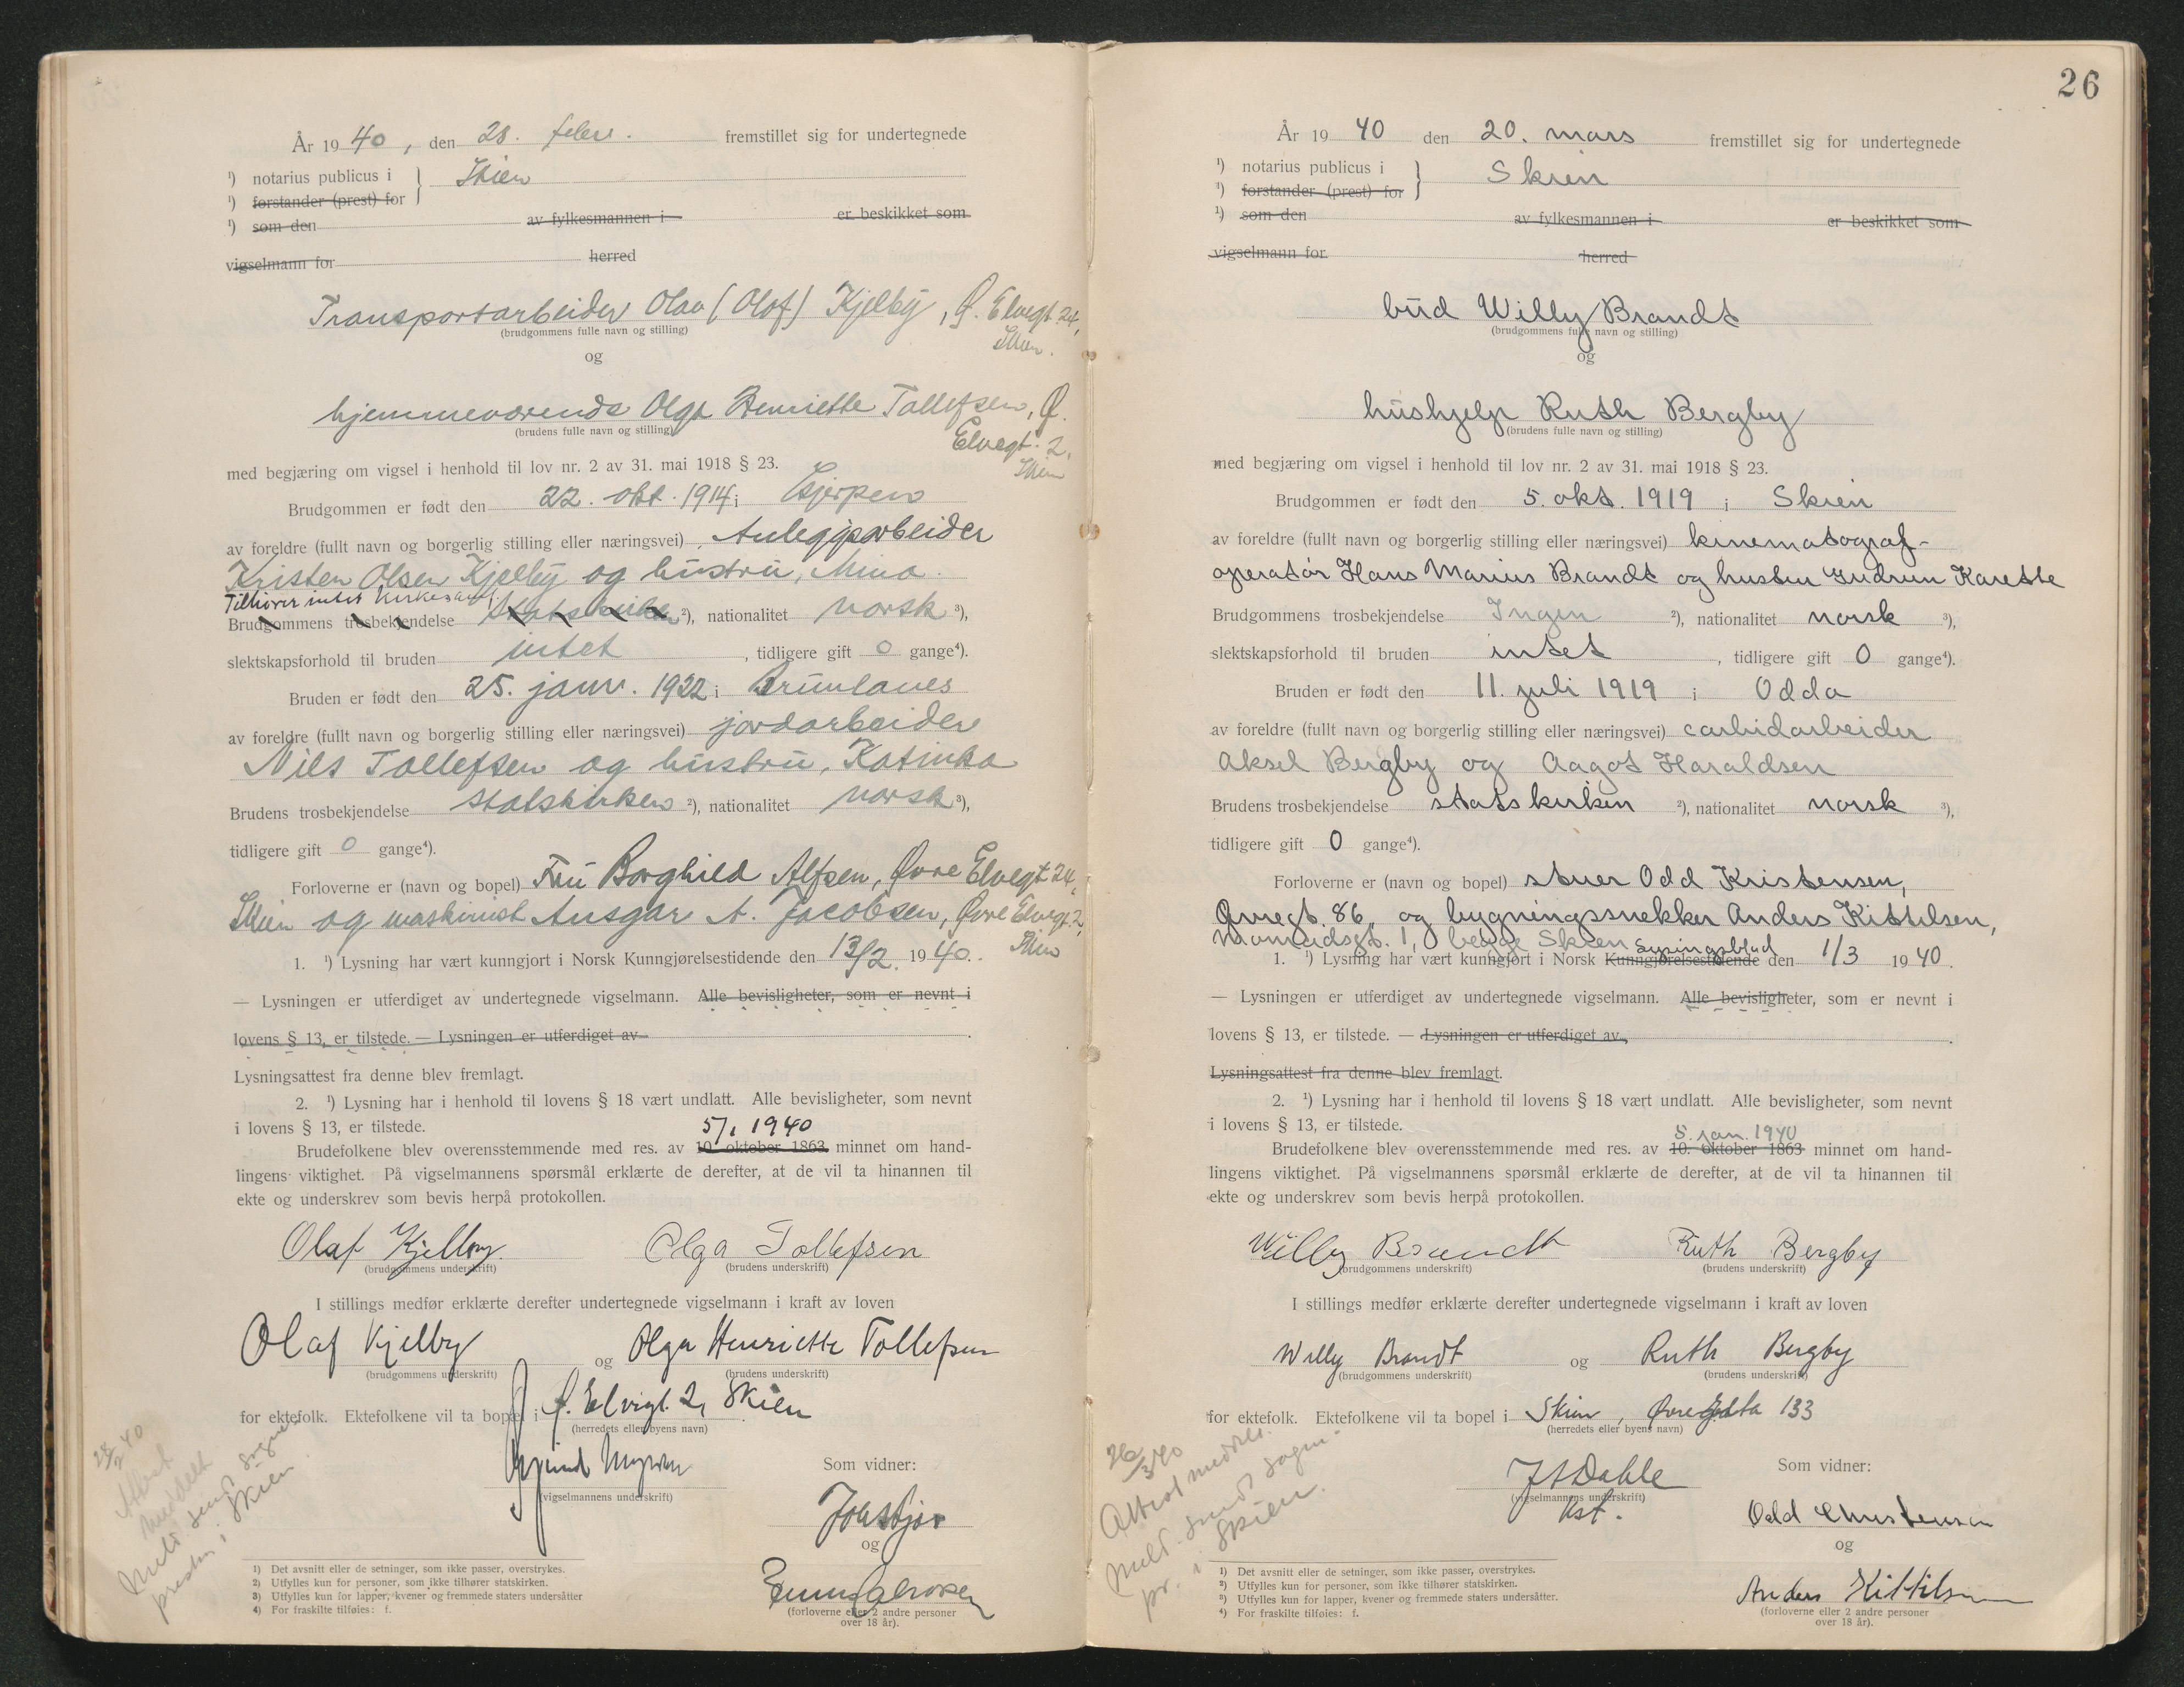 År 1940, den 28. febr. fremstillet sig for undertegnede
¹) notarius publicus i } Skien
¹) forstander (prest) for
¹) som den av fylkesmannen i er beskikket som
vigselmann for herred
Transportarbeider Olav (Olof) Kjelby, Ø. Elvegt. 24,
(brudgommens fulle navn og stilling)
Skien.
og
hjemmeværende Olga Henriette Tollefsen, Ø.
(brudens fulle navn og stilling)
Elvegt. 2,
Skien
med begjæring om vigsel i henhold til lov nr. 2 av 31. mai 1918 § 23.
Brudgommen er født den 22. okt. 1914 i Gjerpen
av foreldre (fullt navn og borgerlig stilling eller næringsvei) Anleggsarbeider
Kristen Olsen Kjelby og hustru, Mina.
Tilhører intet kirkesamf.
Brudgommens trosbekjendelse Statskirken ²), nationalitet norsk ³),
slektskapsforhold til bruden intet, tidligere gift 0 gange⁴).
Bruden er født den 25. janr. 1922 i Brunlanes
av foreldre (fullt navn og borgerlig stilling eller næringsvei) jordarbeider
Nils Tollefsen og hustru, Katinka
Brudens trosbekjendelse statskirken ²), nationalitet norsk ³),
tidligere gift 0 gange⁴).
Forloverne er (navn og bopel) Fru Borghild Alfsen, Øvre Elvegt 24,
Skien og maskinist Ansgar A. Jacobsen, Øvre Elvegt. 2,
Skien
1. ¹) Lysning har vært kunngjort i Norsk Kunngjørelsestidende den 13/2. 1940.
— Lysningen er utferdiget av undertegnede vigselmann. Alle bevisligheter, som er nevnt i
lovens § 13, er tilstede. — Lysningen er utferdiget av
Lysningsattest fra denne blev fremlagt.
2. ¹) Lysning har i henhold til lovens § 18 vært undlatt. Alle bevisligheter, som nevnt
i lovens § 13, er tilstede.
5/1 1940
Brudefolkene blev overensstemmende med res. av 10. oktober 1863 minnet om hand-
lingens viktighet. På vigselmannens spørsmål erklærte de derefter, at de vil ta hinannen til
ekte og underskrev som bevis herpå protokollen.
Olaf Kjelby Olga Tollefsen
(brudgommens underskrift) (brudens underskrift)
I stillings medfør erklærte derefter undertegnede vigselmann i kraft av loven
Olaf Kjelby og Olga Henriette Tollefsen
(brudgommens underskrift) (brudens underskrift)
for ektefolk. Ektefolkene vil ta bopel i Ø. Elvegt. 2, Skien
(herredets eller byens navn)
(vigselmannens underskrift)
Som vidner:
og
(forloverne eller 2 andre personer
over 18 år).
28/2 40
Attest
meddelt
Meld. sendt sogne-
presten i Skien.
¹) Det avsnitt eller de setninger, som ikke passer, overstrykes.
²) Utfylles kun for personer, som ikke tilhører statskirken.
³) Utfylles kun for lapper, kvener og fremmede staters undersåtter
⁴) For fraskilte tilføies: f.
26
År 1940 den 20. mars fremstillet sig for undertegnede
¹) notarius publicus i } Skien
¹) forstander (prest) for
¹) som den av fylkesmannen i er beskikket som
vigselmann for herred
bud Willy Brandt
(brudgommens fulle navn og stilling)
og
hushjelp Ruth Bergby
(brudens fulle navn og stilling)
med begjæring om vigsel i henhold til lov nr. 2 av 31. mai 1918 § 23.
Brudgommen er født den 5. okt. 1919 i Skien
av foreldre (fullt navn og borgerlig stilling eller næringsvei) kinematograf-
operatør Hans Marius Brandt og hustru Gudrun Karette
Brudgommens trosbekjendelse Ingen ²), nationalitet norsk ³),
slektskapsforhold til bruden intet, tidligere gift 0 gange⁴).
Bruden er født den 11. juli 1919 i Odda
av foreldre (fullt navn og borgerlig stilling eller næringsvei) carbidarbeider
Aksel Bergby og Aagot Haraldsen
Brudens trosbekjendelse statskirken ²), nationalitet norsk ³),
tidligere gift 0 gange⁴).
Forloverne er (navn og bopel) stuer Odd Kristensen,
Øvregt. 86, og bygningssnekker Anders Kittilsen,
1, begge Skien
lysingsblad
1. ¹) Lysning har vært kunngjort i Norsk Kunngjørelsestidende den 1/3 1940.
— Lysningen er utferdiget av undertegnede vigselmann. Alle bevisligheter, som er nevnt i
lovens § 13, er tilstede. — Lysningen er utferdiget av
Lysningsattest fra denne blev fremlagt.
2. ¹) Lysning har i henhold til lovens § 18 vært undlatt. Alle bevisligheter, som nevnt
i lovens § 13, er tilstede.
5. jan. 1940
Brudefolkene blev overensstemmende med res. av 10. oktober 1863 minnet om hand-
lingens viktighet. På vigselmannens spørsmål erklærte de derefter, at de vil ta hinannen til
ekte og underskrev som bevis herpå protokollen.
Willy Brandt Ruth Bergby
(brudgommens underskrift) (brudens underskrift)
I stillings medfør erklærte derefter undertegnede vigselmann i kraft av loven
Willy Brandt og Ruth Bergby
(brudgommens underskrift) (brudens underskrift)
for ektefolk. Ektefolkene vil ta bopel i Skien, Øvregata 133
(herredets eller byens navn)
Dahle
(vigselmannens underskrift)
kst.
Som vidner:
Odd Christensen
og
Anders Kittilsen
(forloverne eller 2 andre personer
over 18 år).
26/3 40
Attest meddelt.
Meld. sendt sogne-
pr. i Skien.
¹) Det avsnitt eller de setninger, som ikke passer, overstrykes.
²) Utfylles kun for personer, som ikke tilhører statskirken.
³) Utfylles kun for lapper, kvener og fremmede staters undersåtter.
⁴) For fraskilte tilføies: f.